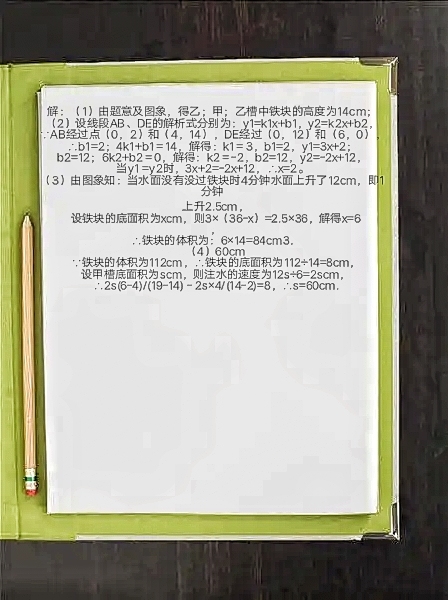 解：（1）由题意及图象，得乙；甲；乙槽中铁块的高度为14cm；
（2）设线段AB、DE的解析式分别为：y1=k1x+b1，y2=k2x+b2，
∵AB经过点（0，2）和（4，14），DE经过（0，12）和（6，0）
∴b1=2；4k1+b1＝14，解得：k1＝3，b1=2，y1=3x+2；
b2=12；6k2+b2＝0，解得：k2＝-2，b2=12，y2=-2x+12，
当y1＝y2时，3x+2=-2x+12，∴x=2。
（3）由图象知：当水面没有没过铁块时4分钟水面上升了12cm，即1
分钟
上升2.5cm，
设铁块的底面积为xcm，则3×（36-x）=2.5×36，解得x=6
，
∴铁块的体积为：6×14=84cm3．
（4）60cm
∵铁块的体积为112cm，∴铁块的底面积为112÷14=8cm，
设甲槽底面积为scm，则注水的速度为12s÷6=2scm，
∴2s(6-4)/(19-14)﹣2s×4/(14-2)=8，∴s=60cm.